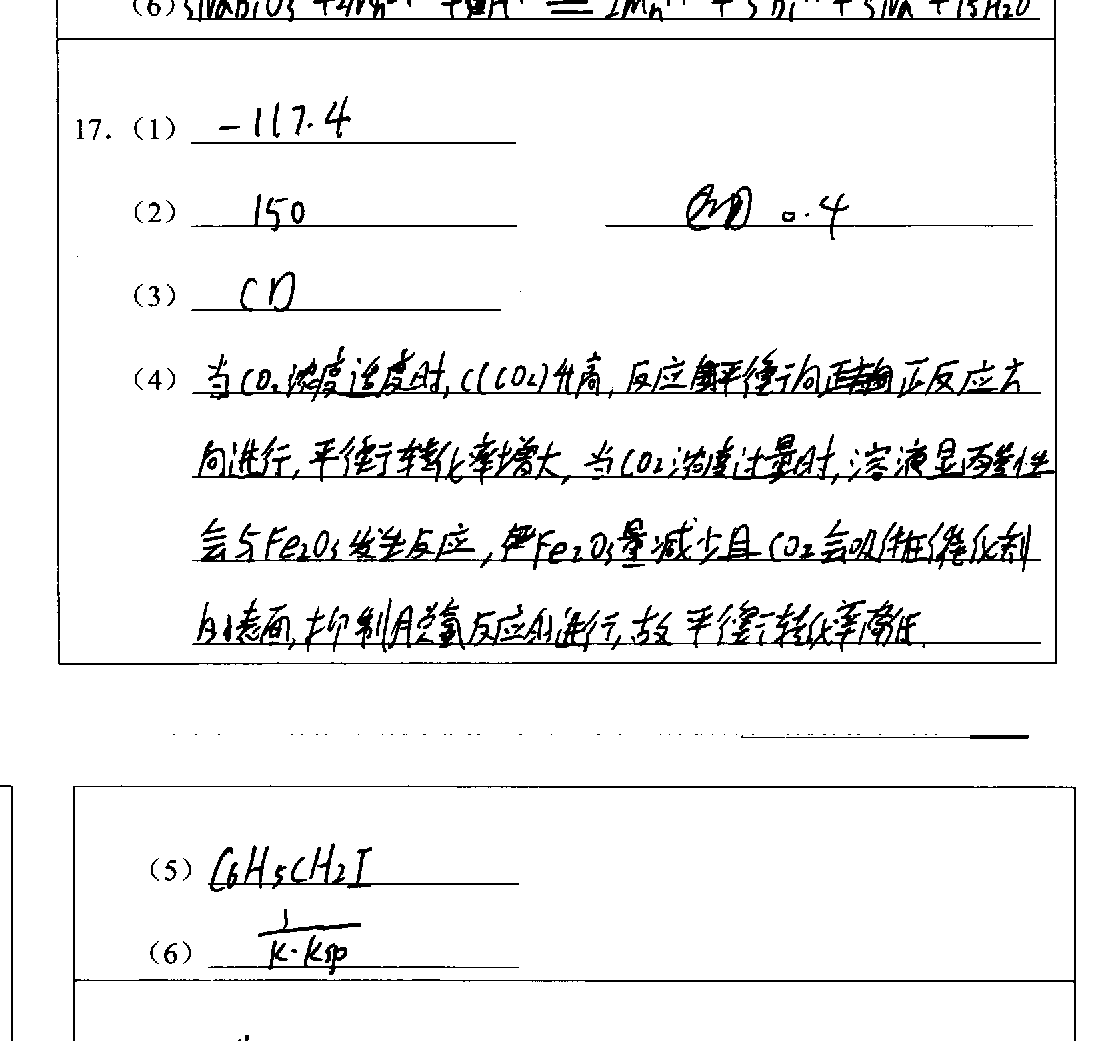 (6) 5NaBiO₃ + 2Mn²⁺ + 14H⁺ = 2Mn + 5Bi + 5Na + 15H₂O
17. (1) -117.4
(2) 150 0.4
(3) CD
(4) 当CO₂浓度适度时, C(CO₂)升高, 反应平衡向正反应方
向进行, 平衡转化率增大, 当CO₂浓度过量时, 溶液显两性
会与Fe₂O₃发生反应, 使Fe₂O₃量减少且CO₂会吸附在催化剂
的表面, 抑制脱氢反应的进行, 故平衡转化率降低.
(5) C₆H₅CH₂I
(6) 1/(K·Ksp)